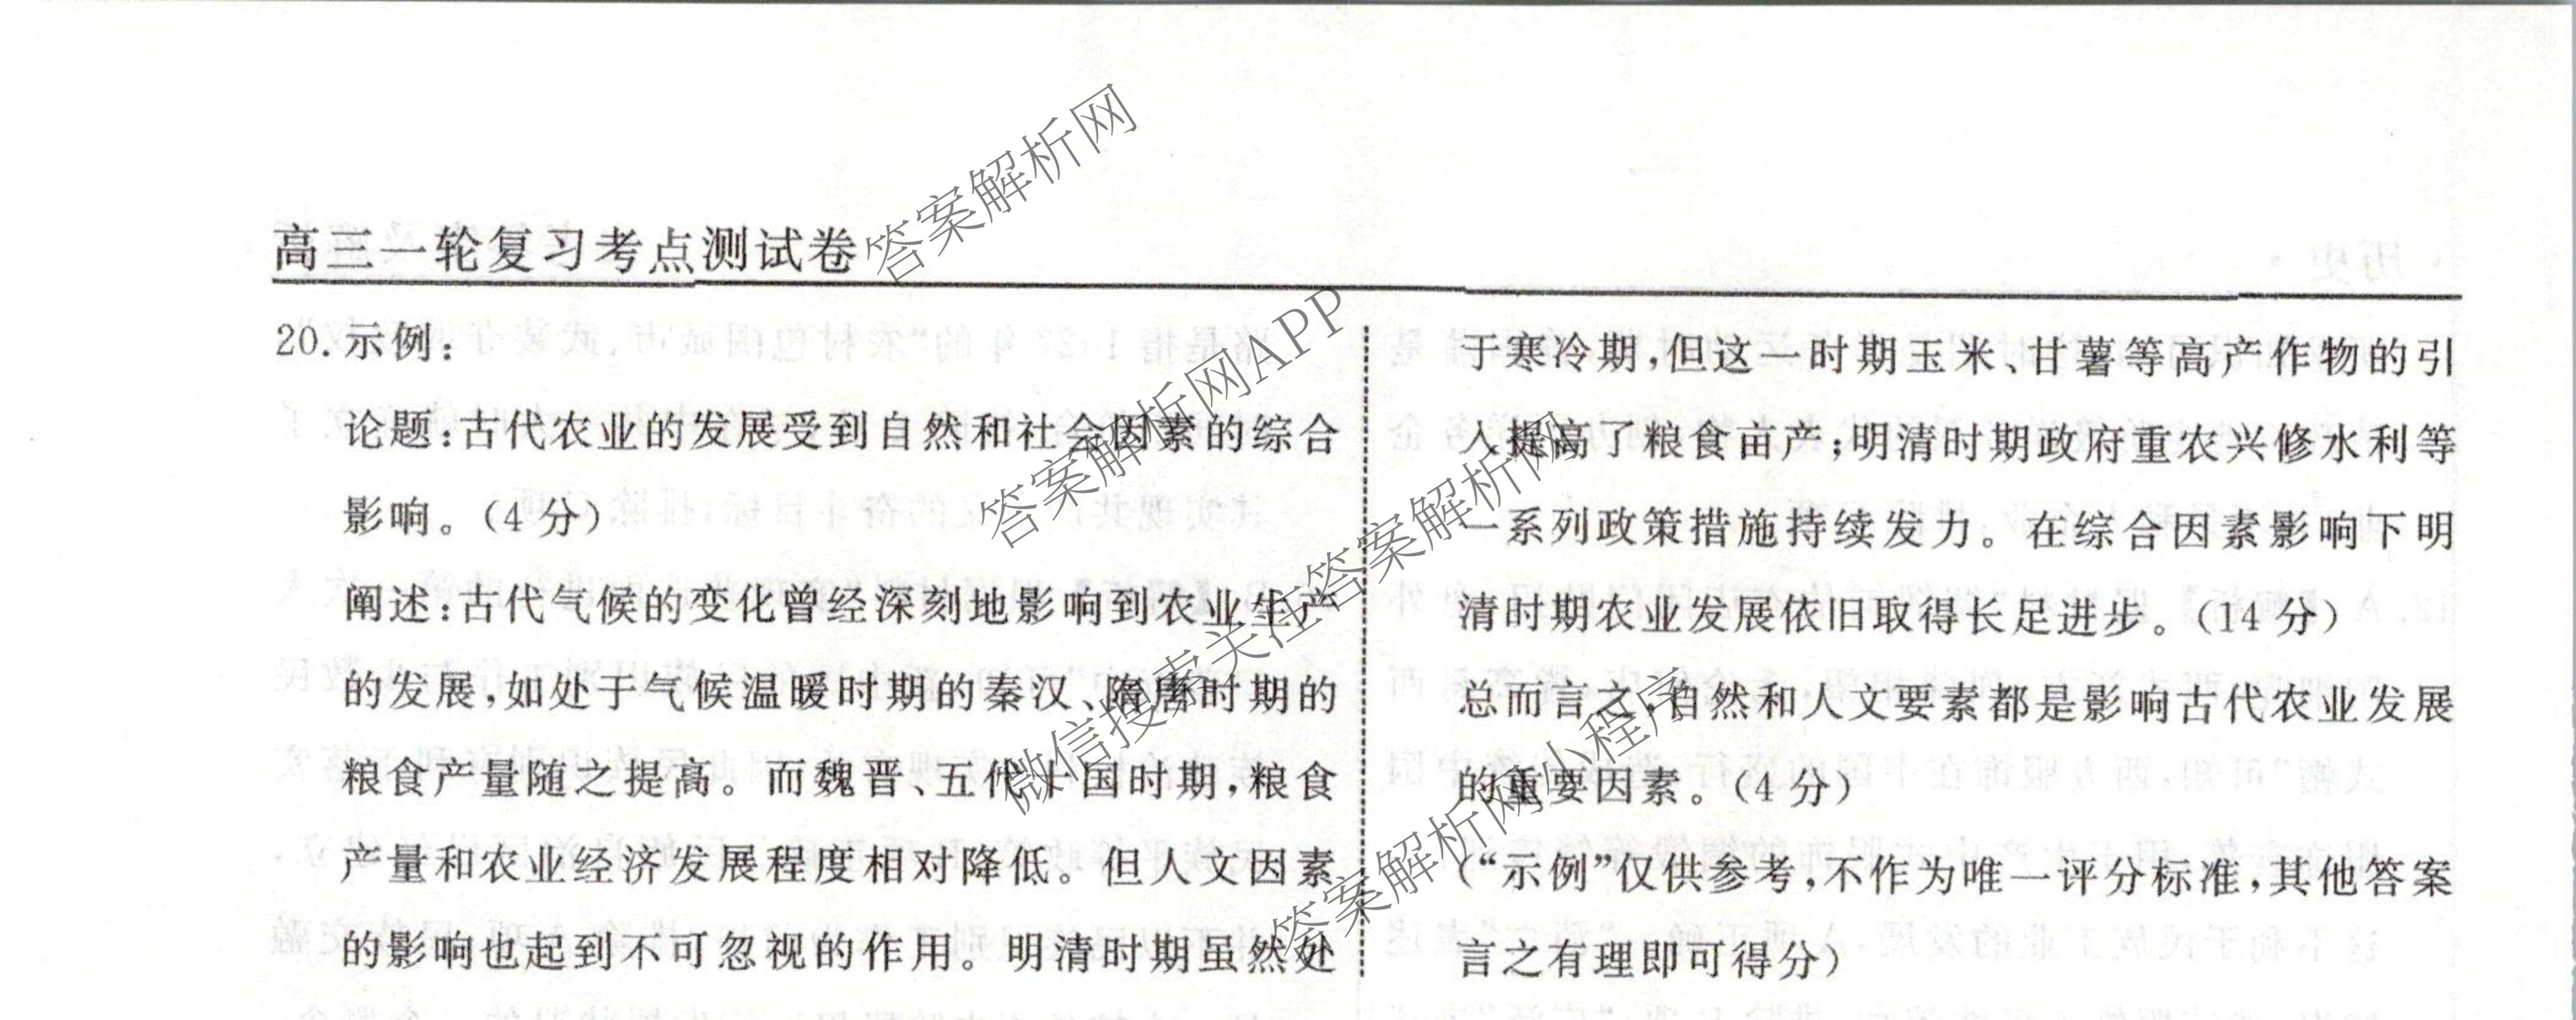 高三一轮复习考点测试卷
20.示例：
论题：古代农业的发展受到自然和社会因素的综合
影响。(4分)
阐述：古代气候的变化曾经深刻地影响到农业生产
的发展，如处于气候温暖时期的秦汉、隋唐时期的
粮食产量随之提高。而魏晋、五代十国时期，粮食
产量和农业经济发展程度相对降低。但人文因素
的影响也起到不可忽视的作用。明清时期虽然处
于寒冷期，但这一时期玉米、甘薯等高产作物的引
入提高了粮食亩产；明清时期政府重农兴修水利等
一系列政策措施持续发力。在综合因素影响下明
清时期农业发展依旧取得长足进步。(14分)
总而言之，自然和人文要素都是影响古代农业发展
的重要因素。(4分)
(“示例”仅供参考，不作为唯一评分标准，其他答案
言之有理即可得分)
答案解析网
答案解析网APP
微信搜索关注答案解析网
答案解析网小程序